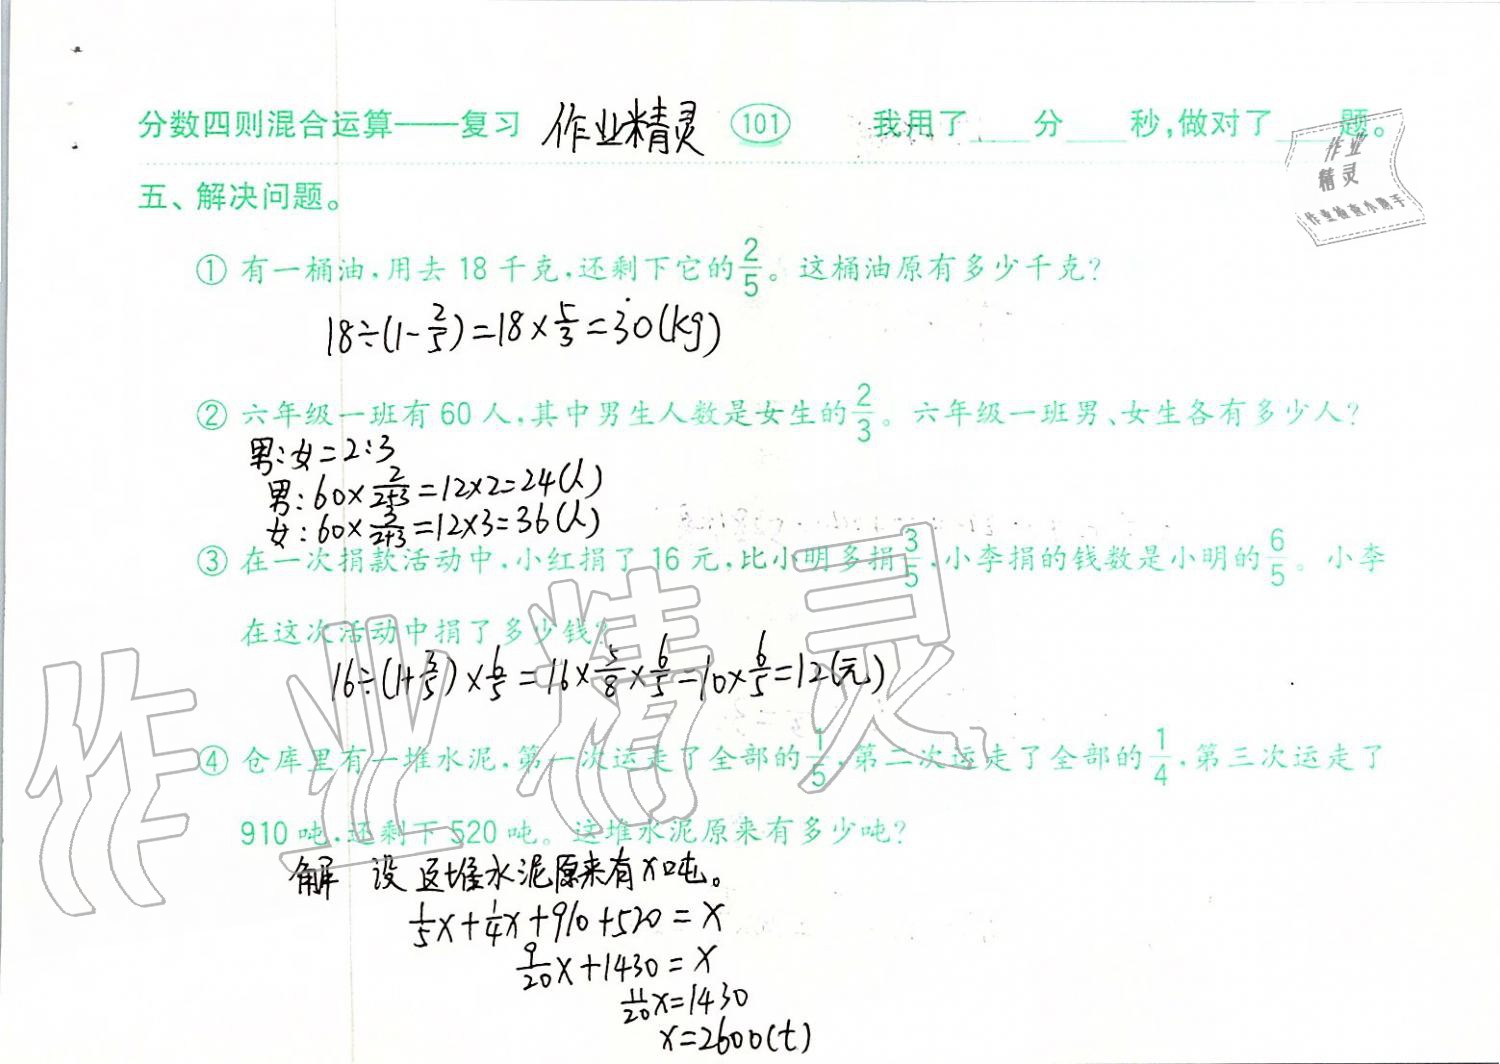 分数四则混合运算——复习 作业精灵 101 我用了____分____秒,做对了____题。
作业
精灵
作业检查小助手
五、解决问题。
① 有一桶油,用去 18 千克,还剩下它的2/5。这桶油原有多少千克?
18÷(1-2/5)=18×5/3=30(kg)
② 六年级一班有 60 人,其中男生人数是女生的2/3。六年级一班男、女生各有多少人?
男:女=2:3
男:60×2/(2+3)=12×2=24(人)
女:60×3/(2+3)=12×3=36(人)
③ 在一次捐款活动中,小红捐了 16 元,比小明多捐3/5,小李捐的钱数是小明的6/5。小李
在这次活动中捐了多少钱?
16÷(1+3/5)×6/5=16×5/8×6/5=10×6/5=12(元)
④ 仓库里有一堆水泥,第一次运走了全部的1/5,第二次运走了全部的1/4,第三次运走了
910 吨,还剩下 520 吨。这堆水泥原来有多少吨?
解 设这堆水泥原来有x吨。
1/5x+1/4x+910+520=x
9/20x+1430=x
11/20x=1430
x=2600(t)
作业精灵